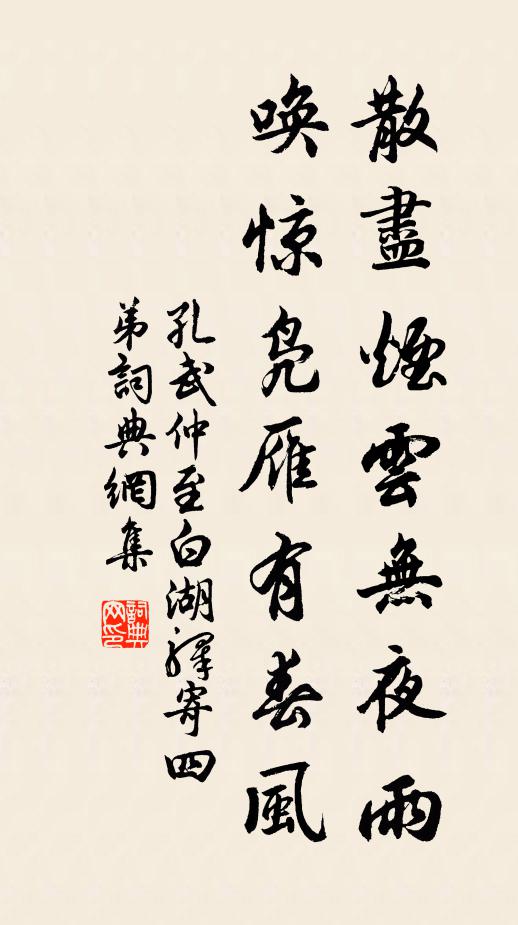 散盡煙雲無夜雨
喚惊凫雁有春風
孔武仲至白湖驛寄四
弟詞典網集
詞典
网印